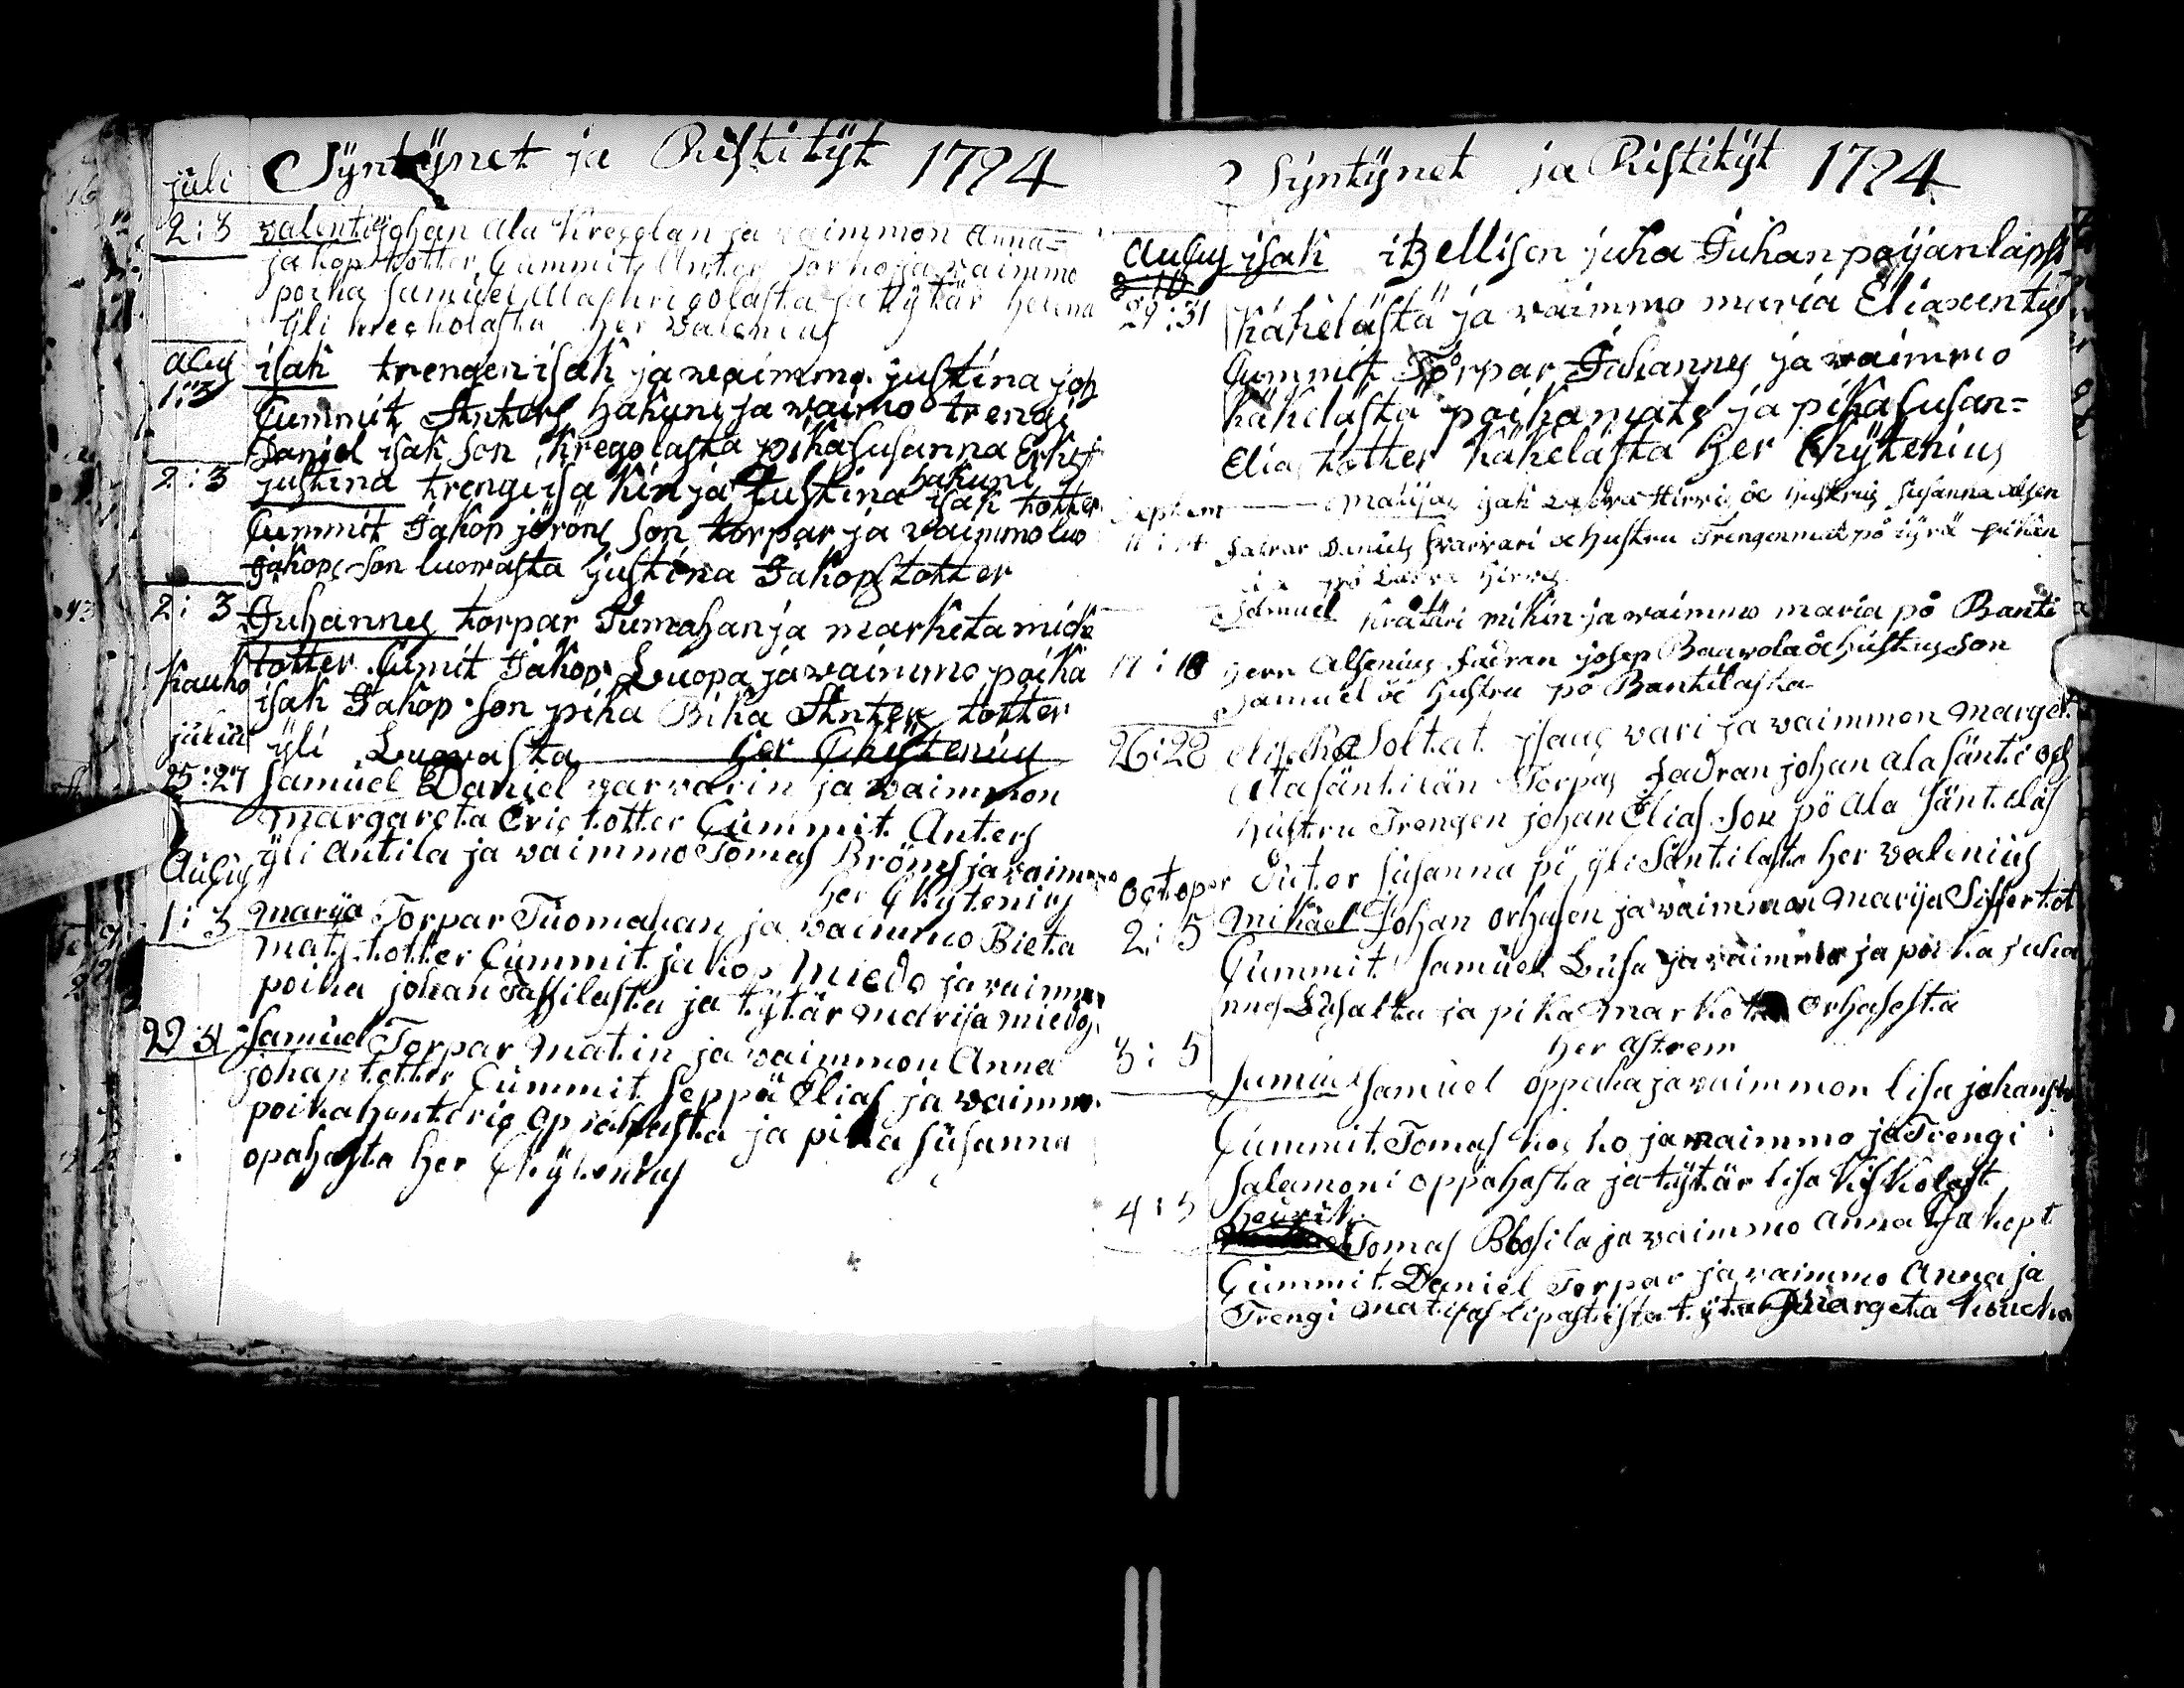 Syntynet ja Ristityt 1794
juli
2:3 valenti johan Ala Kregolan ja vaimmon Anna=
jakop totter Cummit Anter Torho ja vaimmo
poika Samuel Alaphrigolasta ja tytär Helena
yli kregholasta her Valenius
Aug isak trengen isak ja vaimmo justina joh
1:3 Cummit Anters hakuni ja vaimo trengi
Daniel isak son kregolasta pika susanna Erks
2:3 justina trengi isakin ja Justina hakuni isak totter
Cummit Jakop jöröns son torpar ja vaimmo luo
Jakop son luowasta justina Jakops totter
2:3 Juhannes torpar Tumahan ja marketa mick
kauko totter Cumit Jakop Luopa ja vaimmo poika
isak Jakop son pika Bika Anters totter
yli Luovasta her Chytenius
juliu
25:27 Samuel Daniel varvarin ja vaimmon
Margareta Eric totter Cummit Anters
yli Antila ja vaimmo Tomas Bröms ja vaimmo
her Chytenius
Augus
1:3 Marija Torpar Tuomahan ja vaimmo Bieta
mats totter Cummit jakop Miedo ja vaimmo
poika johan Tassilasta ja tytär Marija miedos
29:31 Samuel Torpar Matin ja vaimmon Anna
johan totter Cummit Seppä Elias ja vaimmo
poika ja pika Susanna
opahasta her Chytenius
Syntynet ja Ristityt 1794
Augus isak itzellisen juha Juhan poijan lapsi
29:31 kähelästä ja vaimmo maria Eliaxen tyt
Cummit Torpar Juhannes ja vaimmo
kähelästä poika mats ja pika susan=
Elias totter kähelästä her Chytenius
Septem Matijas isak Ladva Hirvis oc hustrus Susanna
11:14 Fadrar Daniels Svarvari oc hustru Trengen mat på pikan
på Ladva Hirvis
Samuel Kratari mikin ja vaimmo maria på Banti
17:18 herr Alsenius Fadran josep Bauvola oc hustrus son
Samuel oc hustru på Bantilasta
26:28 elisaka Soltat isaus vari ja vaimmon Marget
Ala säntilän Torpas Fadran johan ala säntis och
hustru Trengen johan Elias son på Ala Säntiläs
doter Susanna på yli Säntilasta her Valenius
Octoper
2:5 Mikael Johan orhasen ja vaimmon Marija Siffer tot
Cummit Samuel Lusa ja vaimmo ja poika juha
nnes Lusalta ja pika Marketa orhasesta
her Astrem
3:5 Samuel Samuel oppaha ja vaimmon lisa johans
Cummit Tomas ko ho ja vaimmo ja Trengi
Salamoni oppahasta ja tytär lisa kiskolast
4:5 Henrik
Tomas Blosila ja vaimmo Anna Jakop t
Cummit Daniel Torpar ja vaimmo Anna ja
Trengi matisas lipastista tytar Margeta koucho